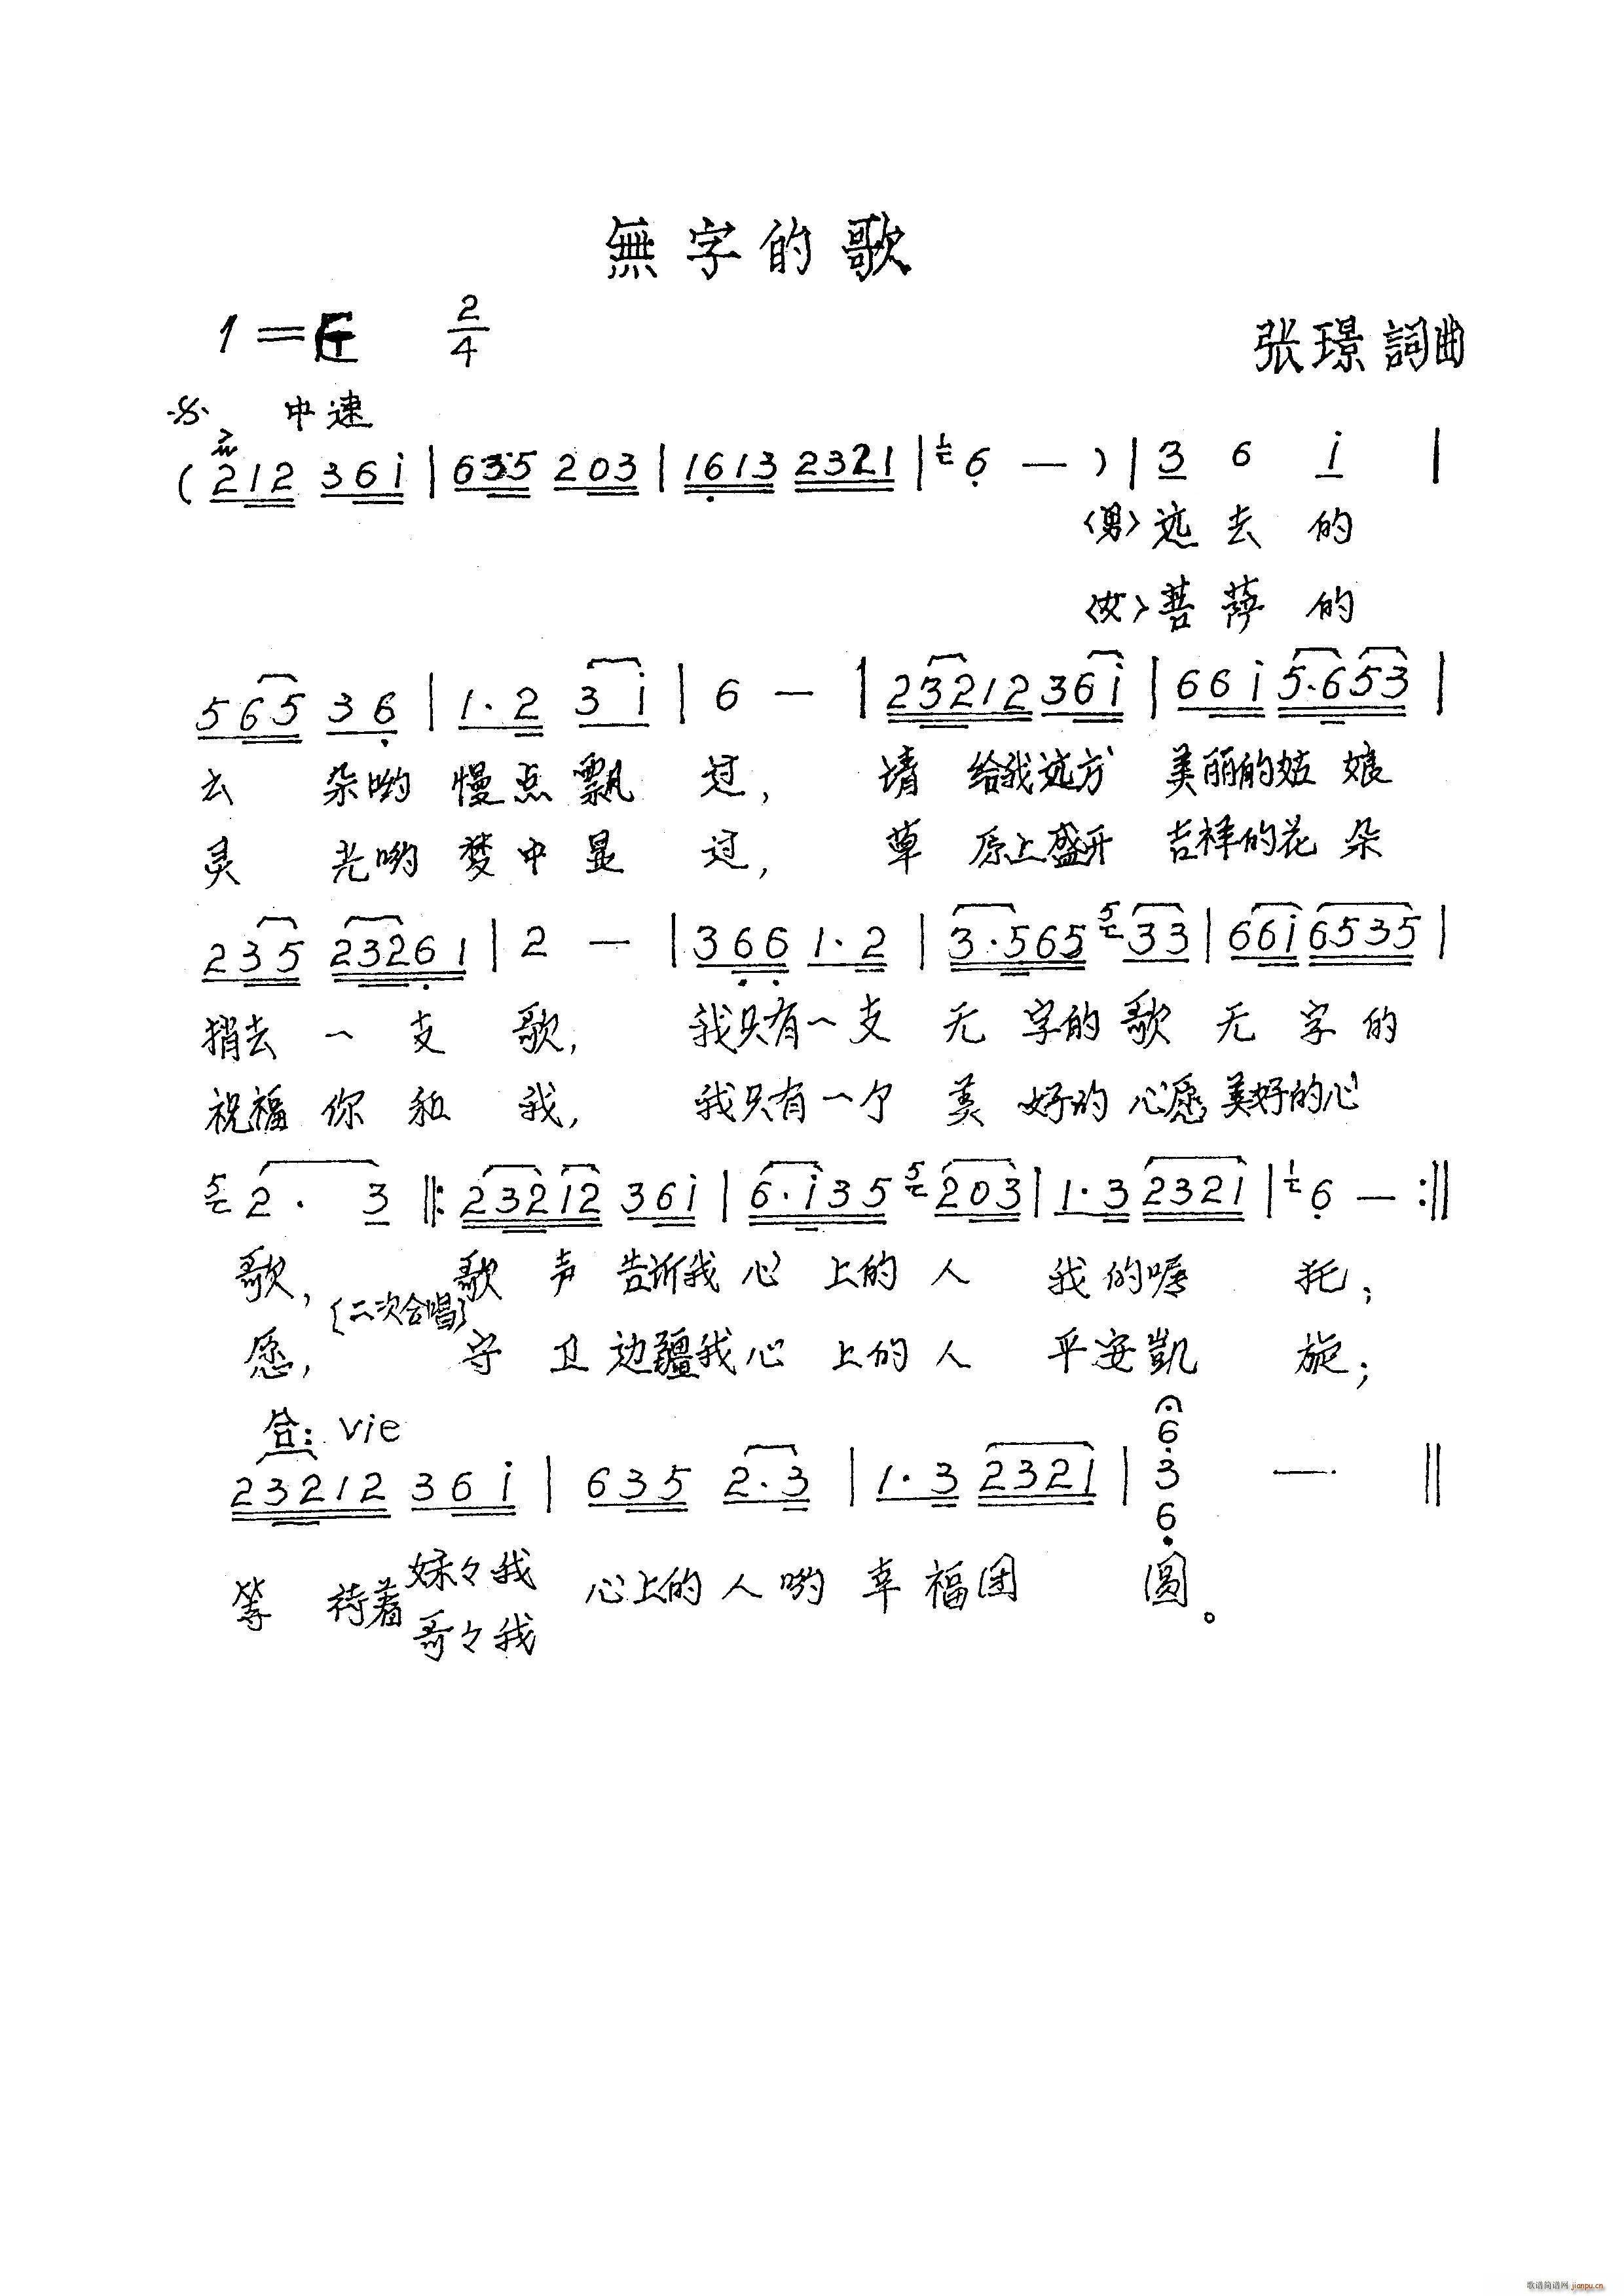 無字的歌
1= 2/4
张璟詞曲
中速
(212 36i|635 203|1613 2321|1 6 — )|3 6 i|
〈男〉远去的
〈女〉菩萨的
565 36|1·2 3i|6 —|23212 36i|66i 5·653|
云 朵哟 慢点飘 过, 请 给我远方 美丽的姑娘
灵 光哟 梦中显 过, 草 原上盛开 吉祥的花朵
235 23261|2 —|366 1·2|3·565 5 33|66i 6535|
捎去 一 支 歌, 我只有一支 无 字的歌 无 字 的
祝福 你 和 我, 我只有一个 美 好的 心愿 美好的心
5 2· 3 ‖: 23212 36i|6·i35 5 203|1·3 2321|1 6 — :‖
歌, 歌 声 告诉我 心 上的 人 我的嘱 托;
(二次合唱)
愿, 守 卫 边疆我 心 上的 人 平安凱 旋;
合: vie
23212 36i|635 2·3|1·3 2321|6 3 6 — ‖
等 待着妹々我 心上的人哟 幸福团 圆。
哥々我
歌谱简谱网 jianpu.cn